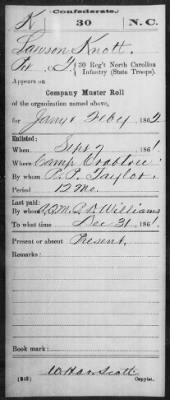 Confederate.
K 30 N.C.
Lawson Knott
Pvt, Co. G, 30 Reg't North Carolina
Infantry (State Troops)
Appears on
Company Muster Roll
of the organization named above,
for Jany & Feby, 1862
Enlisted:
When Sept 7, 1861
Where Camp Crabtree
By whom P. P. Taylor
Period 12 Mo.
Last paid:
By whom A.Q.M. Williams
To what time Dec 31, 1861
Present or absent Present.
Remarks:
Book mark:
Copyist.